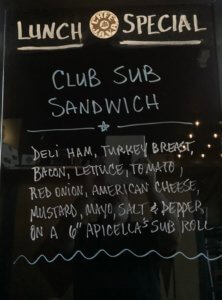 LUNCH SPECIAL
CLUB SUB
SANDWICH
DELI HAM, TURKEY BREAST,
BACON, LETTUCE, TOMATO,
RED ONION, AMERICAN CHEESE,
MUSTARD, MAYO, SALT & PEPPER,
ON A 6" APICELLA'S SUB ROLL